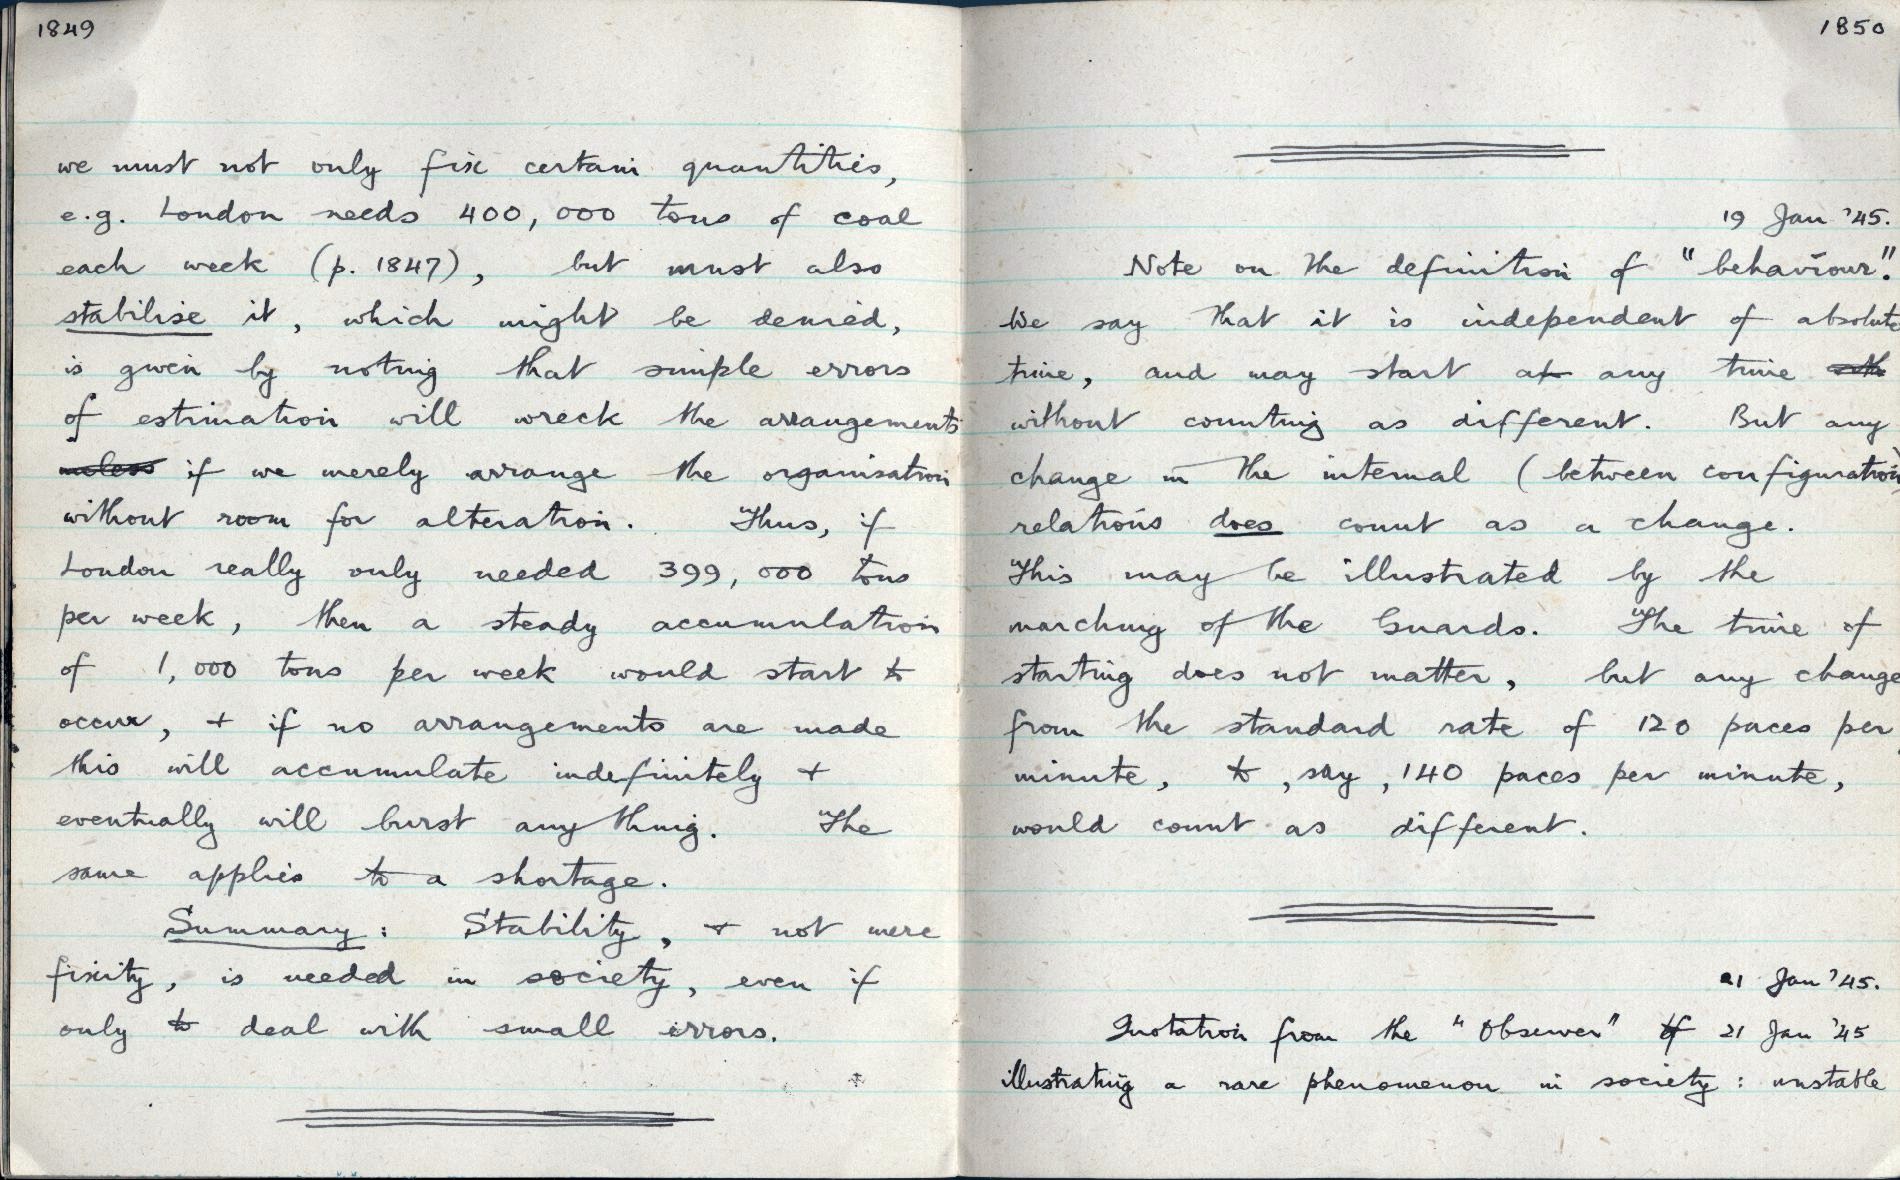 1849
we must not only fix certain quantities,
e.g. London needs 400,000 tons of coal
each week (p. 1847), but must also
stabilise it, which might be denied,
is given by noting that simple errors
of estimation will wreck the arrangements
unless if we merely arrange the organisation
without room for alteration. Thus, if
London really only needed 399,000 tons
per week, then a steady accumulation
of 1,000 tons per week would start to
occur, + if no arrangements are made
this will accumulate indefinitely +
eventually will burst anything. The
same applies to a shortage.
Summary: Stability, + not mere
fixity, is needed in society, even if
only to deal with small errors.
1850
19 Jan '45.
Note on the definition of "behaviour".
We say that it is independent of absolute
time, and may start at any time
without counting as different. But any
change in the internal (between configuration)
relations does count as a change.
This may be illustrated by the
marching of the Guards. The time of
starting does not matter, but any change
from the standard rate of 120 paces per
minute, to, say, 140 paces per minute,
would count as different.
21 Jan '45.
Quotation from the "Observer" of 21 Jan '45
illustrating a rare phenomenon in society: unstable